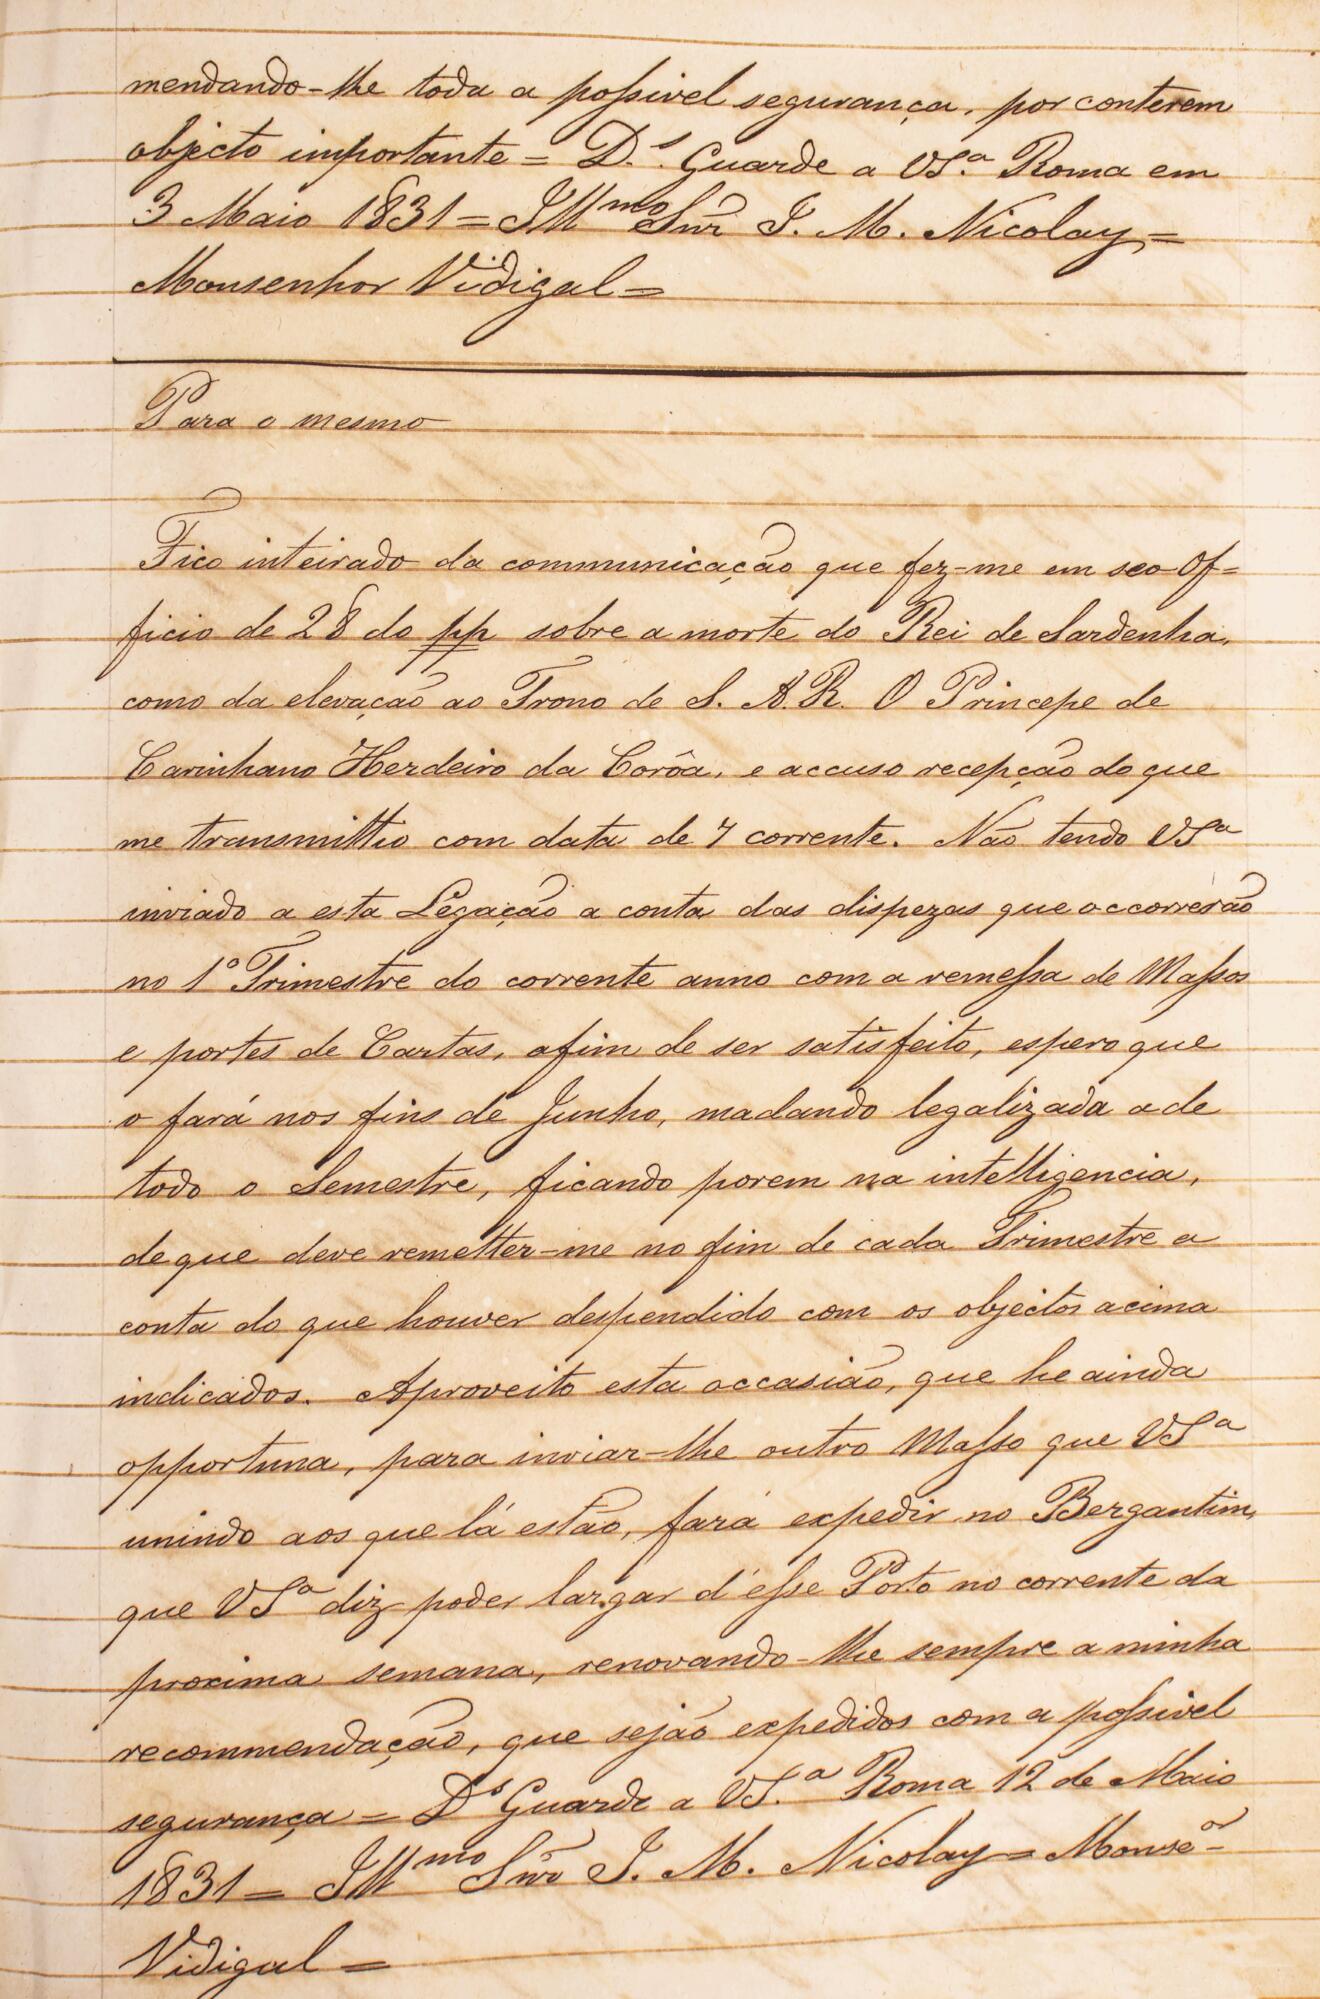 mendando-lhe toda a possivel segurança, por conterem
objecto importante = D.s Guarde a VS.a Roma em
3 Maio 1831 = Illmo Snr J. M. Nicolay =
Monsenhor Vidigal =
Para o mesmo
Fico inteirado da communicação que fez-me em seo Of=
ficio de 28 do pp sobre a morte do Rei de Sardenha,
como da elevação ao Trono de S. A. R. O Principe de
Carinhano Herdeiro da Corôa, e accuso recepção do que
me transmittio com data de 7 corrente. Não tendo VSa
inviado a esta Legação a conta das dispezas que occorrerão
no 1º Trimestre do corrente anno com a remessa de Massos
e portes de Cartas, afim de ser satisfeito, espero que
o fará nos fins de Junho, madando legalizada a de
todo o Semestre, ficando porem na intelligencia,
de que deve remetter-me no fim de cada Trimestre a
conta do que houver despendido com os objectos acima
indicados. Aproveito esta occasião, que he ainda
opportuna, para inviar-lhe outro Masso que VSa
unindo aos que lá estão, fará expedir no Bergantim,
que VSa diz poder largar d'esse Porto no corrente da
proxima semana, renovando-lhe sempre a minha
recommendação, que sejão expedidos com a possivel
segurança = Ds Guarde a VS.a Roma 12 de Maio
1831 = Illmo Snr J. M. Nicolay = Monseor
Vidigal =